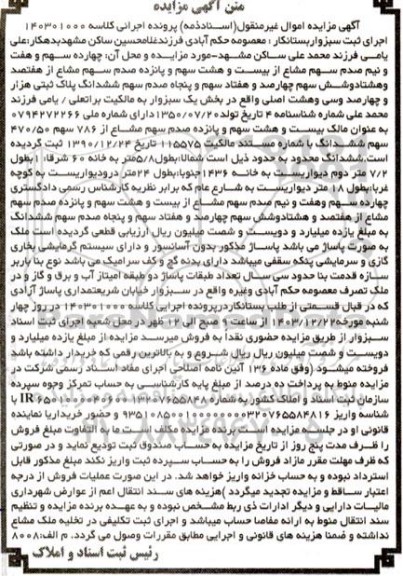 متن آگهی مزایده
آگهی مزایده اموال غیرمنقول(اسنادذمه) پرونده اجرائی کلاسه ۱۴۰۳۰۱۰۰۰
اجرای ثبت سبزواربستانکار: معصومه حکم آبادی فرزندغلامحسین ساکن مشهدبدهکار:علی
یامی فرزند محمد علی ساکن مشهد-مورد مزایده و محل آن: چهارده سهم و هفت
و نیم صدم سهم مشاع از بیست و هشت سهم و پانزده صدم سهم مشاع از هفتصد
وهشتادوشش سهم چهارصد و هفتاد سهم و پنجاه صدم سهم ششدانگ پلاک ثبتی هزار
و چهارصد وسی وهشت اصلی واقع در بخش یک سبزوار به مالکیت براتعلی / یامی فرزند
محمد علی شماره شناسنامه ۴ تاریخ تولد ۱۳۵۰/۰۷/۲۰ دارای شماره ملی ۰۷۹۴۲۷۲۲۶۶
به عنوان مالک بیست و هشت سهم و پانزده صدم سهم مشاع از ۷۸۶ سهم ۴۷۰/۵۰
سهم ششدانگ با شماره مستند مالکیت ۱۱۵۵۷۵ تاریخ ۱۳۹۰/۱۲/۲۴ ثبت گردیده
است.ششدانگ محدود به حدود ذیل است شمالا:بطول۵/۸متر به خانه ۶۰ شرقا: بطول
۷/۲ متر دوم دیواریست به خانه ۱۴۳۶ جنوبا:بطول ۲۴متر درودیواریست به کوچه
غربا بطول ۱۸ متر دیواریست به شارع عام که برابر نظریه کارشناس رسمی دادگستری
چهارده سهم وهفت و نیم صدم سهم مشاع از بیست و هشت سهم و پانزده صدم سهم
مشاع از هفتصد و هشتادوشش سهم چهارصد و هفتاد سهم و پنجاه صدم سهم ششدانگ
به مبلغ یازده میلیارد و دویست و شصت میلیون ریال ارزیابی قطعی گردیده است ملک
به صورت پاساژ می باشد پاساژ مذکور بدون آسانسور و دارای سیستم گرمایشی بخاری
گازی و سرمایشی پنکه سقفی میباشد دارای بدنه گچ و کف سرامیک می باشد نوع بنا باربر
سازه قدمت بنا حدود سی سال تعداد طبقات پاساژ دو طبقه امیتاز آب و برق و گاز و در
ملک تصرف معصومه حکم آبادی وغیره واقع در سبزوار خیابان شریعتمداری پاساژ آزادی
که در قبال قسمتی از طلب بستانکاردرپرونده اجرایی کلاسه ۱۴۰۳۰۱۰۰۰ در روز چهار
شنبه مورخه۱۴۰۳/۱۲/۲۲ از ساعت ۹ صبح الی ۱۲ ظهر در محل شعبه اجرای ثبت اسناد
سبزوار از طریق مزایده حضوری نقدا به فروش میرسد مزایده از مبلغ یازده میلیارد و
دویست و شصت میلیون ریال ریال شروع و به بالاترین رقمی که خریدار داشته باشد
فروخته میشود (وفق ماده ۱۳۶ آئین نامه اصلاحی اجرای مفاد اسناد رسمی شرکت در
مزایده منوط به پرداخت ده درصد از مبلغ پایه کارشناسی به حساب تمرکز وجوه سپرده
سازمان ثبت اسناد و املاک کشور به شماره
شناسه واریز و حضور خریداریا نماینده
قانونی او در جلسه مزایده است.برنده مزایده مکلف است ما به التفاوت مبلغ فروش
را ظرف مدت پنج روز از تاریخ مزایده به حساب صندوق ثبت تودیع نماید و در صورتی
که ظرف مهلت مقرر مازاد فروش را به حساب سپرده ثبت واریز نکند مبلغ مذکور قابل
استرداد نبوده و به حساب خزانه واریز خواهد شد. در این صورت عملیات فروش از درجه
اعتبار ساقط و مزایده تجدید میگردد )هزینه های سند انتقال اعم از عوارض شهرداری
مالیات دارایی و دیگر ادارات ذی ربط مشخص نبوده و به عهده برنده مزایده و تنظیم
سند انتقال منوط به ارائه مفاصا حساب میباشد و اجرای ثبت تکلیفی در تخلیه ملک مشاع
نداشته و ضمنا هزینه های قانونی و اجرایی مطابق مقررات وصول می گردد. م الف:۸۰۰۸
رئیس ثبت اسناد و املاک